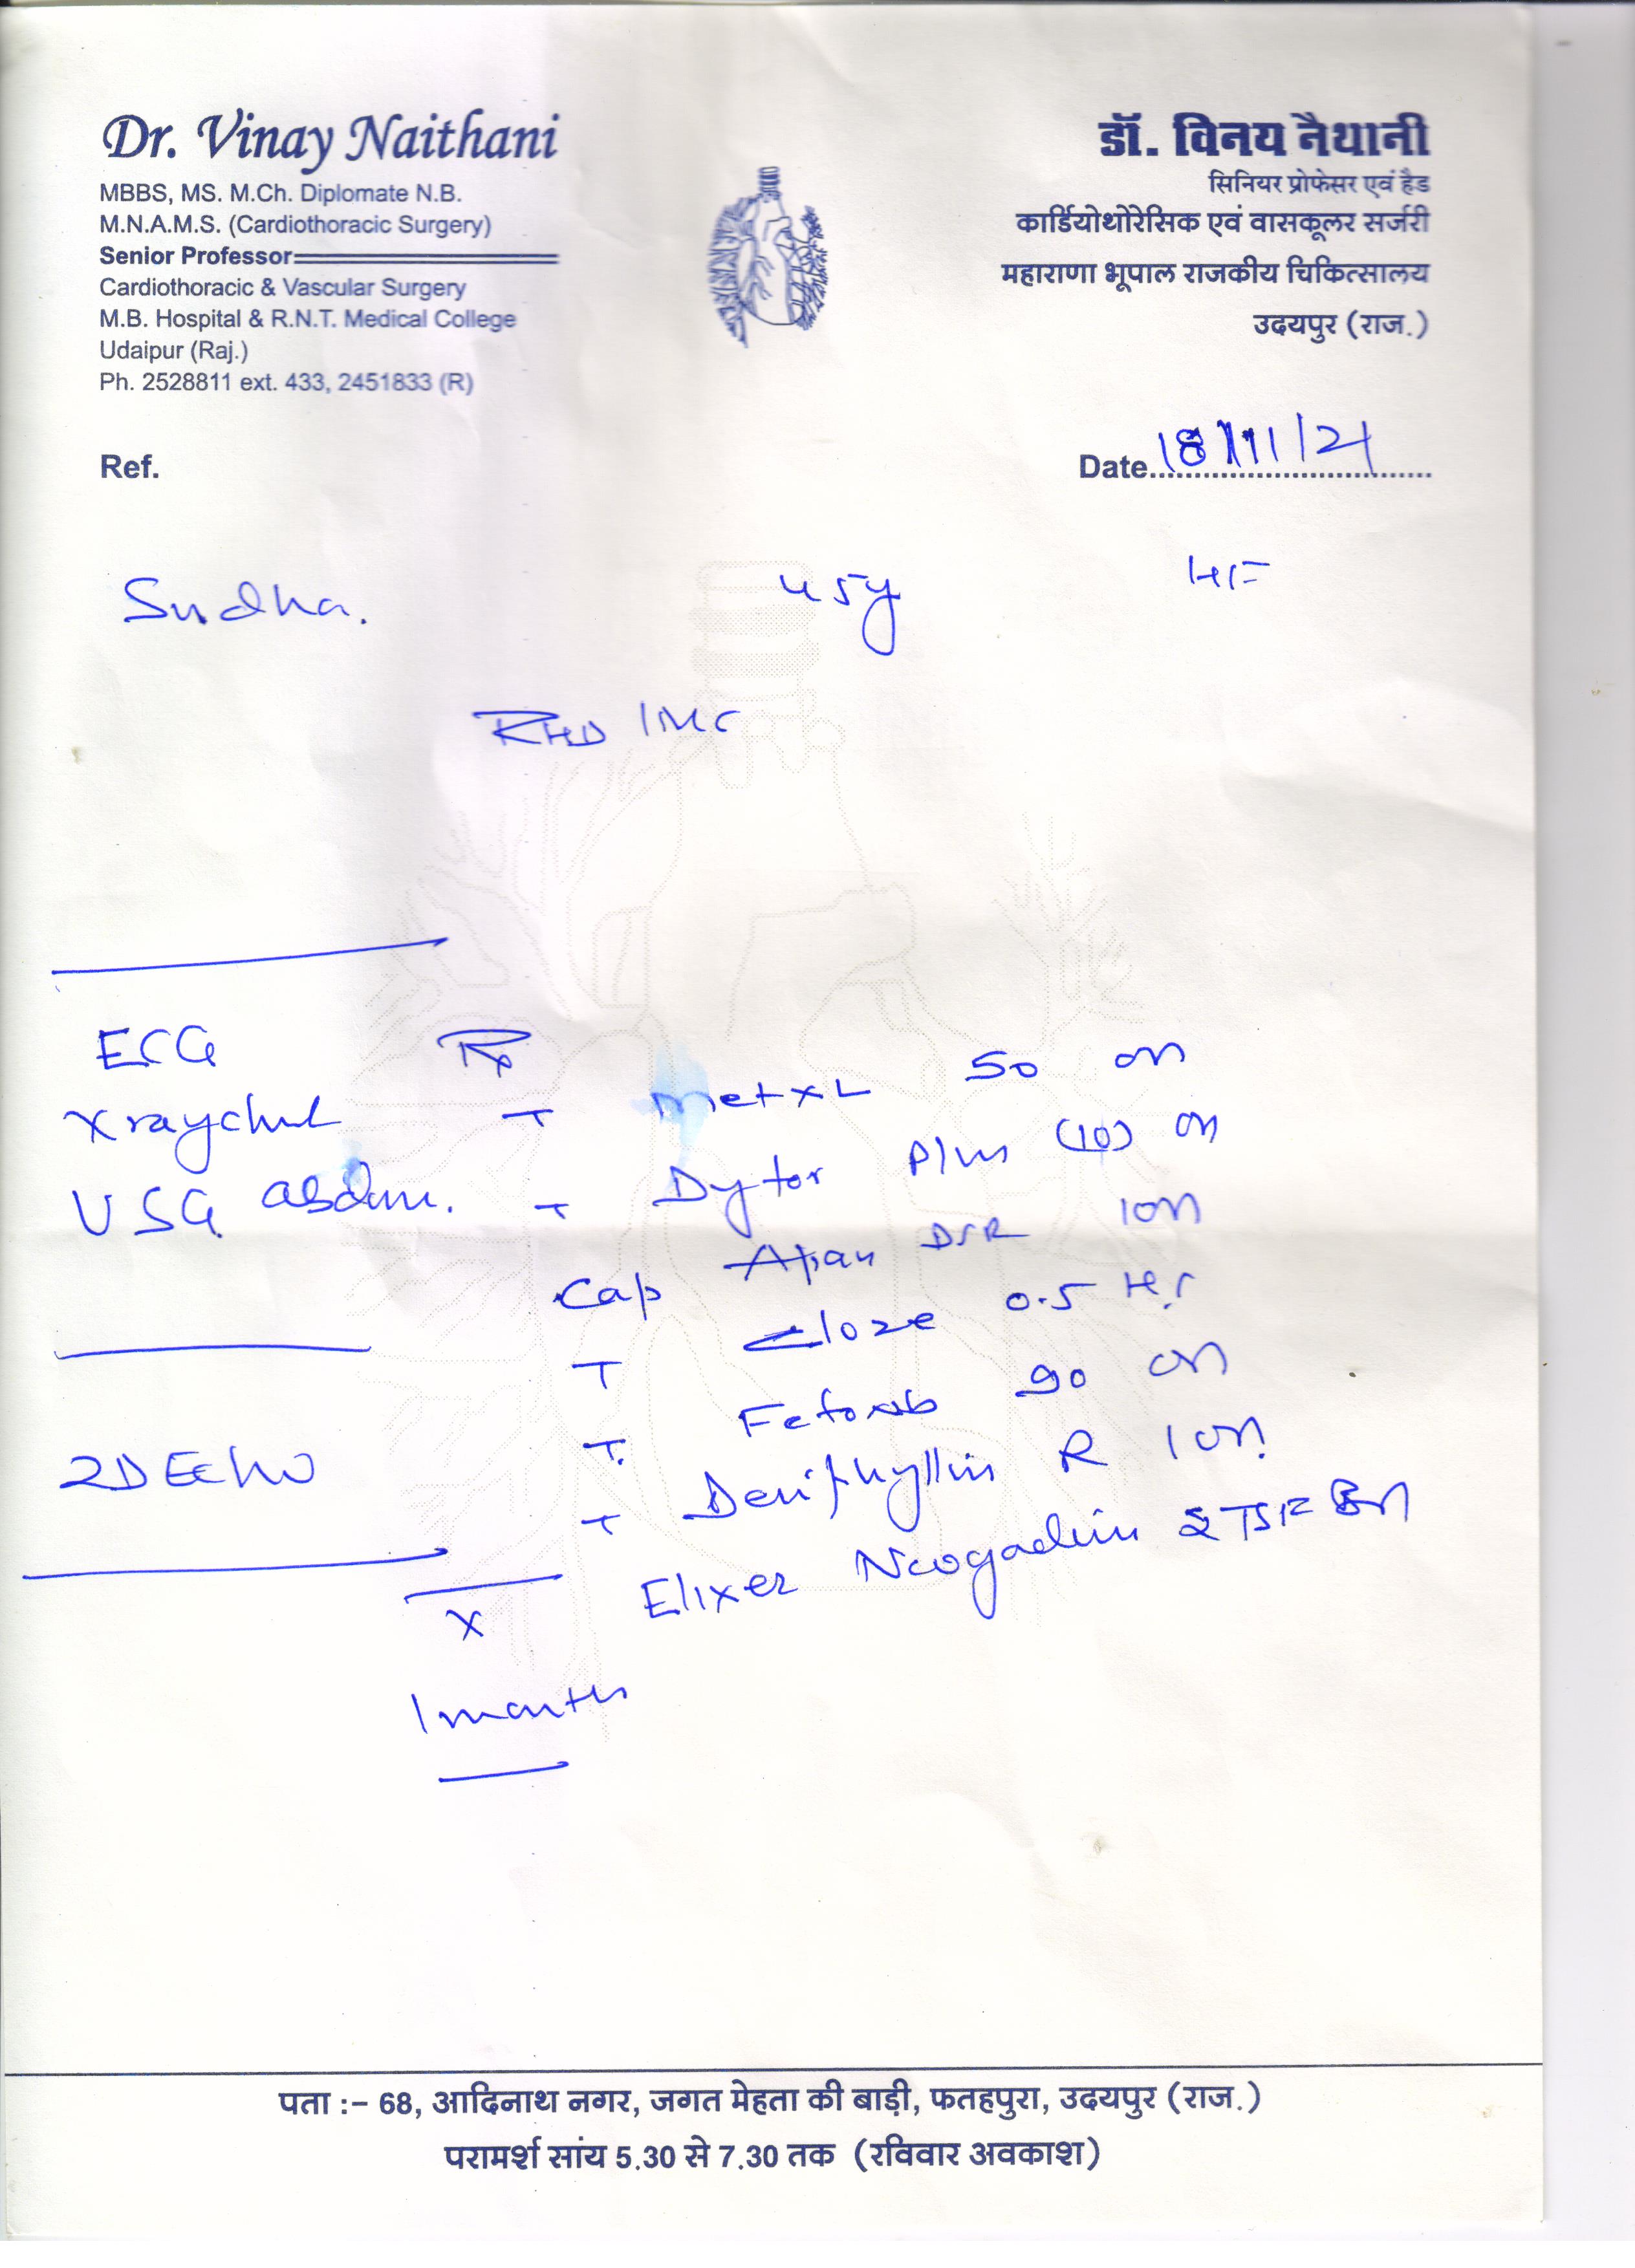 Dr. Vinay Naithani
MBBS, MS. M.Ch. Diplomate N.B.
M.N.A.M.S. (Cardiothoracic Surgery)
Senior Professor
Cardiothoracic & Vascular Surgery
M.B. Hospital & R.N.T. Medical College
Udaipur (Raj.)
Ph. 2528811 ext. 433, 2451833 (R)
डॉ. विनय नैथानी
सिनियर प्रोफेसर एवं हैड
कार्डियोथोरेसिक एवं वासकूलर सर्जरी
महाराणा भूपाल राजकीय चिकित्सालय
उदयपुर (राज.)
Ref.
Date 18/11/21
Sudha. 45y
RHD
ECG
X ray
USG
2D Echo
Rx
T metxL 50 on
T Dytor Plus (10) on
Cap Apan DSR 1on
T cloze 0.5
T. 90 on
T Deriphyllin R 1on
Elixer Neogadin
x
1 month
पता :- 68, आदिनाथ नगर, जगत मेहता की बाड़ी, फतहपुरा, उदयपुर (राज.)
परामर्श सांय 5.30 से 7.30 तक (रविवार अवकाश)